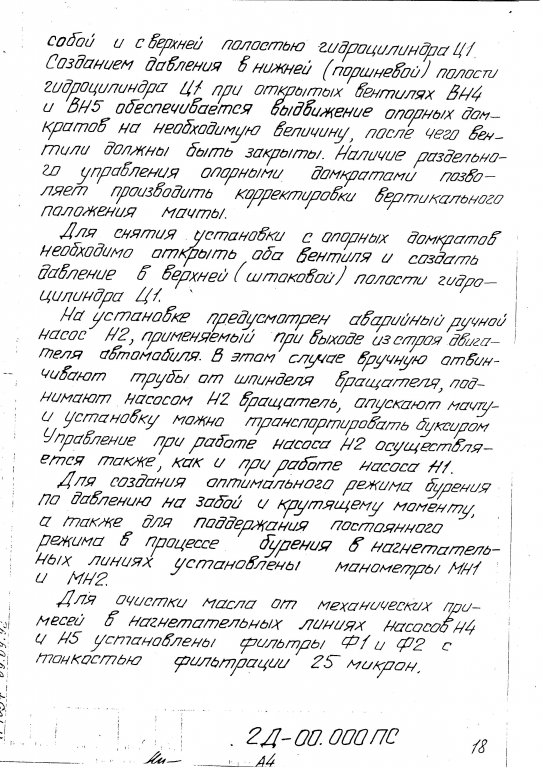 собой и с верхней полостью гидроцилиндра Ц1.
Созданием давления в нижней (поршневой) полости
гидроцилиндра Ц1 при открытых вентилях ВН4
и ВН5 обеспечивается выдвижение опорных дом-
кратов на необходимую величину, после чего вен-
тили должны быть закрыты. Наличие раздельно-
го управления опорными домкратами позво-
ляет производить корректировки вертикального
положения мачты.
Для снятия установки с опорных домкратов
необходимо открыть оба вентиля и создать
давление в верхней (штоковой) полости гидро-
цилиндра Ц1.
На установке предусмотрен аварийный ручной
насос Н2, применяемый при выходе из строя двига-
теля автомобиля. В этом случае вручную отвин-
чивают трубы от шпинделя вращателя, под-
нимают насосом Н2 вращатель, опускают мачту
и установку можно транспортировать буксиром
Управление при работе насоса Н2 осуществля-
ется также, как и при работе насоса Н1.
Для создания оптимального режима бурения
по давлению на забой и крутящему моменту,
а также для поддержания постоянного
режима в процессе бурения в нагнетатель-
ных линиях установлены манометры МН1
и МН2.
Для очистки масла от механических при-
месей в нагнетательных линиях насосов Н4
и Н5 установлены фильтры Ф1 и Ф2 с
тонкостью фильтрации 25 микрон.
2Д-00.000ПС
18
А4